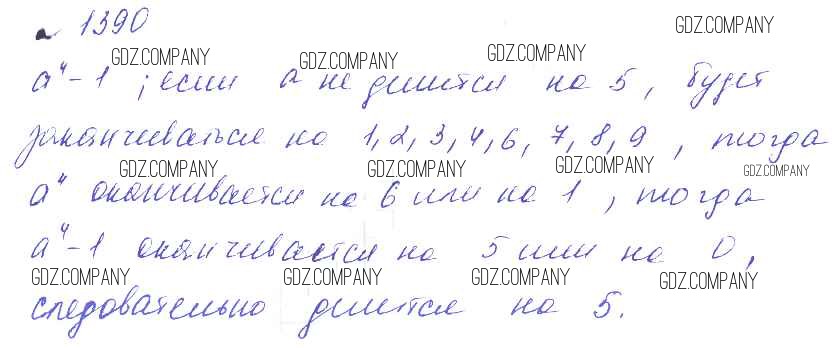 1390
GDZ.COMPANY
GDZ.COMPANY GDZ.COMPANY GDZ.COMPANY
a⁴-1; если a не делится на 5, будет
заканчиваться на 1, 2, 3, 4, 6, 7, 8, 9, тогда
GDZ.COMPANY GDZ.COMPANY GDZ.COMPANY GDZ.COMPANY
a⁴ оканчивается на 6 или на 1, тогда
a⁴-1 оканчивается на 5 или на 0,
GDZ.COMPANY GDZ.COMPANY GDZ.COMPANY GDZ.COMPANY
следовательно делится на 5.